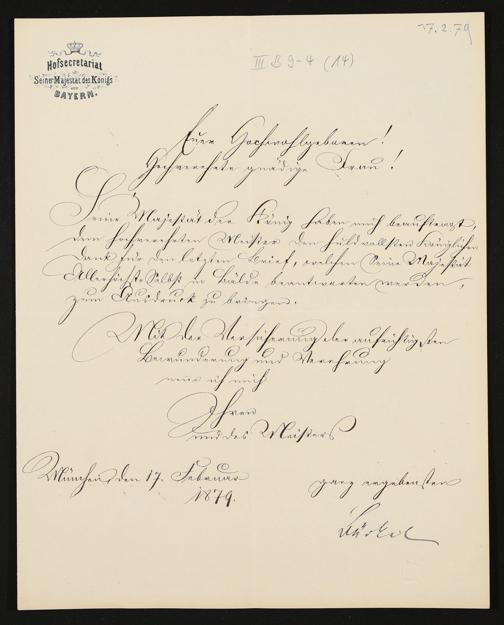 17.2.79
III B 9-4 (14)
Hofsecretariat
Seiner Majestät des Königs
von
BAYERN.
Euer Hochwohlgeboren!
Hochverehrte gnädige Frau!
Seine Majestät der König haben mich beauftragt,
dem hochverehrten Meister den huldvollsten Königlichen
Dank für den letzten Brief, welchen Seine Majestät
Allerhöchst-Selbst in Bälde beantworten werden,
zum Ausdruck zu bringen.
Mit der Versicherung der aufrichtigsten
Bewunderung und Verehrung
nenne ich mich
Ihren
und des Meisters
München, den 17. Februar
1879.
ganz ergebensten
Bürkel